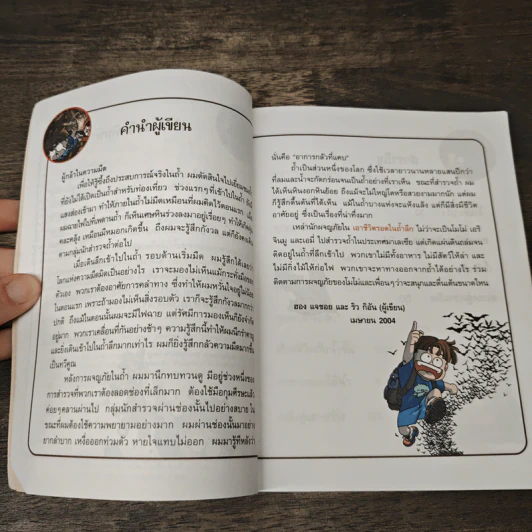 คำนำผู้เขียน
ผู้กล้าในความมืด
เพื่อให้รู้ซึ้งถึงประสบการณ์จริงในถ้ำ ผมตัดสินใจไปเยี่ยมชมถ้ำ
ที่ยังไม่ได้เปิดเป็นถ้ำสำหรับท่องเที่ยว ช่วงแรกๆ ที่เข้าไปในถ้ำ
แสงส่องเข้ามา ทำให้ภายในถ้ำไม่มืดเหมือนที่ผมคิดไว้ตอนแรก
ผมฉายไฟไปที่เพดานถ้ำ ก็เห็นเศษหินร่วงลงมาอยู่เรื่อยๆ ทำให้เกิดฝุ่น
คละคลุ้ง เหมือนมีหมอกเกิดขึ้น ถึงผมจะรู้สึกกังวล แต่ก็ยัง
ตามกลุ่มนักสำรวจถ้ำต่อไป
เมื่อเดินลึกเข้าไปในถ้ำ รอบด้านเริ่มมืด ผมรู้สึกได้เลยว่า
โลกแห่งความมืดมิดเป็นอย่างไร เราจะมองไม่เห็นแม้กระทั่งมือของ
ตัวเอง พวกเราต้องอาศัยการคลำทาง ซึ่งทำให้ผมหวั่นใจอยู่ไม่น้อย
ในตอนแรก เพราะถ้ามองไม่เห็นสิ่งรอบตัว เราก็จะรู้สึกกังวลมากกว่า
ปกติ ถึงแม้ในตอนนั้นผมจะมีไฟฉาย แต่รัศมีการมองเห็นก็ยังจำกัด
อยู่มาก พวกเราเคลื่อนที่กันอย่างช้าๆ ความรู้สึกนี้ทำให้ผมนึกรำคาญ
และยิ่งเดินเข้าไปในถ้ำลึกมากเท่าไร ผมก็ยิ่งรู้สึกกลัวความมืดมากขึ้น
เป็นทวีคูณ
หลังการผจญภัยในถ้ำ ผมมานึกทบทวนดู มีอยู่ช่วงหนึ่งของ
การสำรวจที่พวกเราต้องลอดช่องที่เล็กมาก ต้องใช้มือกุมศีรษะแล้ว
ค่อยๆคลานผ่านไป กลุ่มนักสำรวจผ่านช่องนั้นไปอย่างสบาย ใน
ขณะที่ผมต้องใช้ความพยายามอย่างมาก ผมผ่านช่องนั้นมาอย่าง
ยากลำบาก เหงื่อออกท่วมตัว หายใจแทบไม่ออก ผมมารู้ทีหลังว่า
นั่นคือ "อาการกลัวที่แคบ"
ถ้ำเป็นส่วนหนึ่งของโลก ซึ่งใช้เวลายาวนานหลายแสนปีกว่า
ที่ลมและน้ำจะกัดกร่อนจนเป็นถ้ำอย่างที่เราเห็น ขณะที่สำรวจถ้ำ ผม
ได้เห็นหินงอกหินย้อย ถึงแม้จะไม่ใหญ่โตหรือสวยงามมากนัก แต่ผม
ก็รู้สึกตื่นตันที่ได้เห็น แม้ในถ้ำบางแห่งจะแห้งแล้ง แต่ก็มีสิ่งมีชีวิต
อาศัยอยู่ ซึ่งเป็นเรื่องที่น่าทึ่งมาก
เหล่านักผจญภัยใน เอาชีวิตรอดในถ้ำลึก ไม่ว่าจะเป็นโมโม่ เอริ
จินมู และเอมี่ ไปสำรวจถ้ำในประเทศมาเลเซีย แต่เกิดแผ่นดินถล่มจน
ติดอยู่ในถ้ำที่ลึกเข้าไป พวกเขาไม่มีทั้งอาหาร ไม่มีสัตว์ให้ล่า และ
ไม่มีกิ่งไม้ให้ก่อไฟ พวกเขาจะหาทางออกจากถ้ำได้อย่างไร ร่วม
ติดตามการผจญภัยของโมโม่และเพื่อนๆ ว่าจะสนุกและตื่นเต้นขนาดไหน
ฮอง แจชอย และ ริว กิอัน (ผู้เขียน)
เมษายน 2004